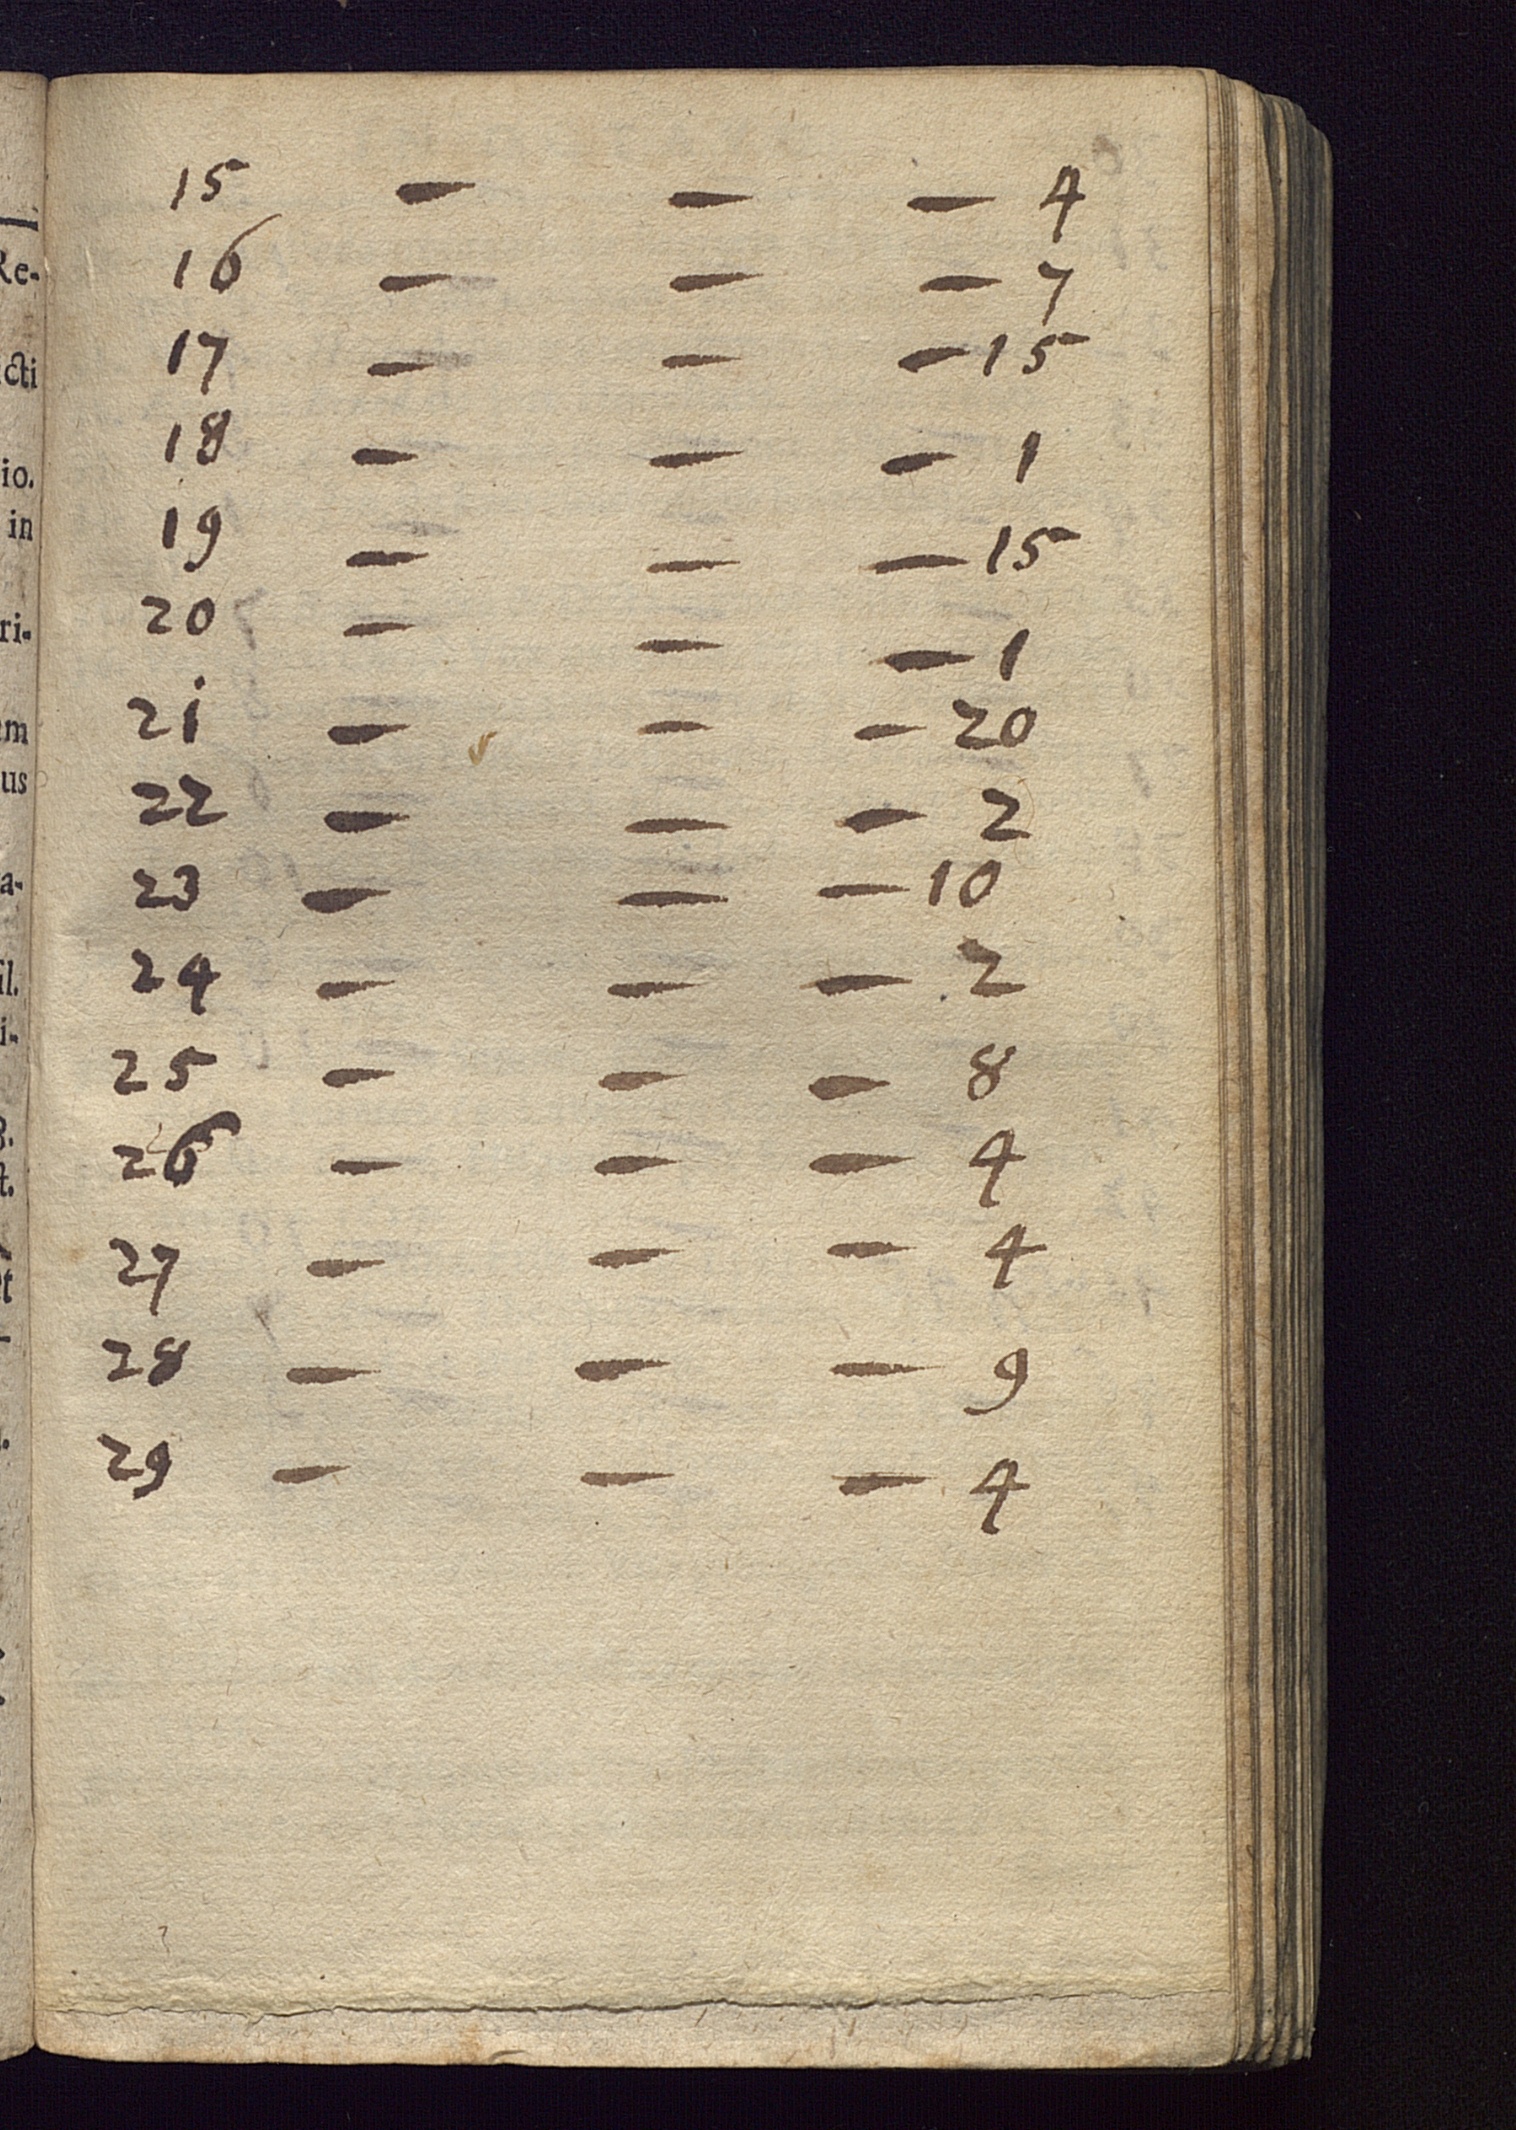 15 — — — 4
16 — — — 7
17 — — — 15
18 — — — 1
19 — — — 15
20 — — — 1
21 — — — 20
22 — — — 2
23 — — — 10
24 — — — 2
25 — — — 8
26 — — — 4
27 — — — 4
28 — — — 9
29 — — — 4
Re-
cti
io.
in
ri-
em
us
a-
il.
i-